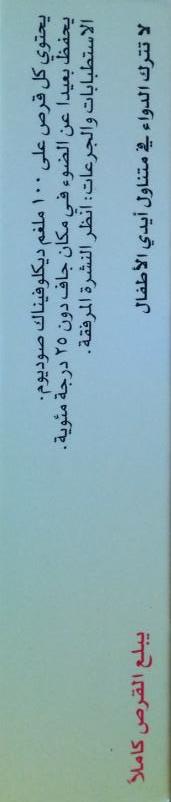 يحتوي كل قرص على ١٠٠ ملغم ديكلوفيناك صوديوم.
يحفظ بعيدا عن الضوء في مكان جاف دون ٢٥ درجة مئوية.
الاستطبابات والجرعات: انظر النشرة المرفقة.
لا تترك الدواء في متناول أيدي الأطفال
يبلع القرص كاملاً